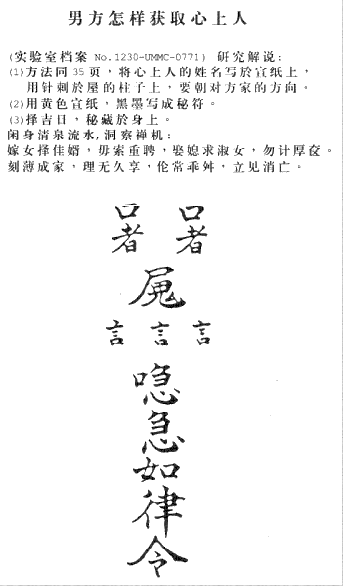 男方怎样获取心上人
(实验室档案 No.1230-UMMC-0771) 研究解说:
(1)方法同35页，将心上人的姓名写於宣纸上，
用针刺於屋的柱子上，要朝对方家的方向。
(2)用黄色宣纸，黑墨写成秘符。
(3)择吉日，秘藏於身上。
闲身清泉流水,洞察禅机：
嫁女择佳婿，毋索重聘，娶媳求淑女，勿计厚奁。
刻薄成家，理无久享，伦常乖舛，立见消亡。
口者 口者
言 言 言
急
如
律
令